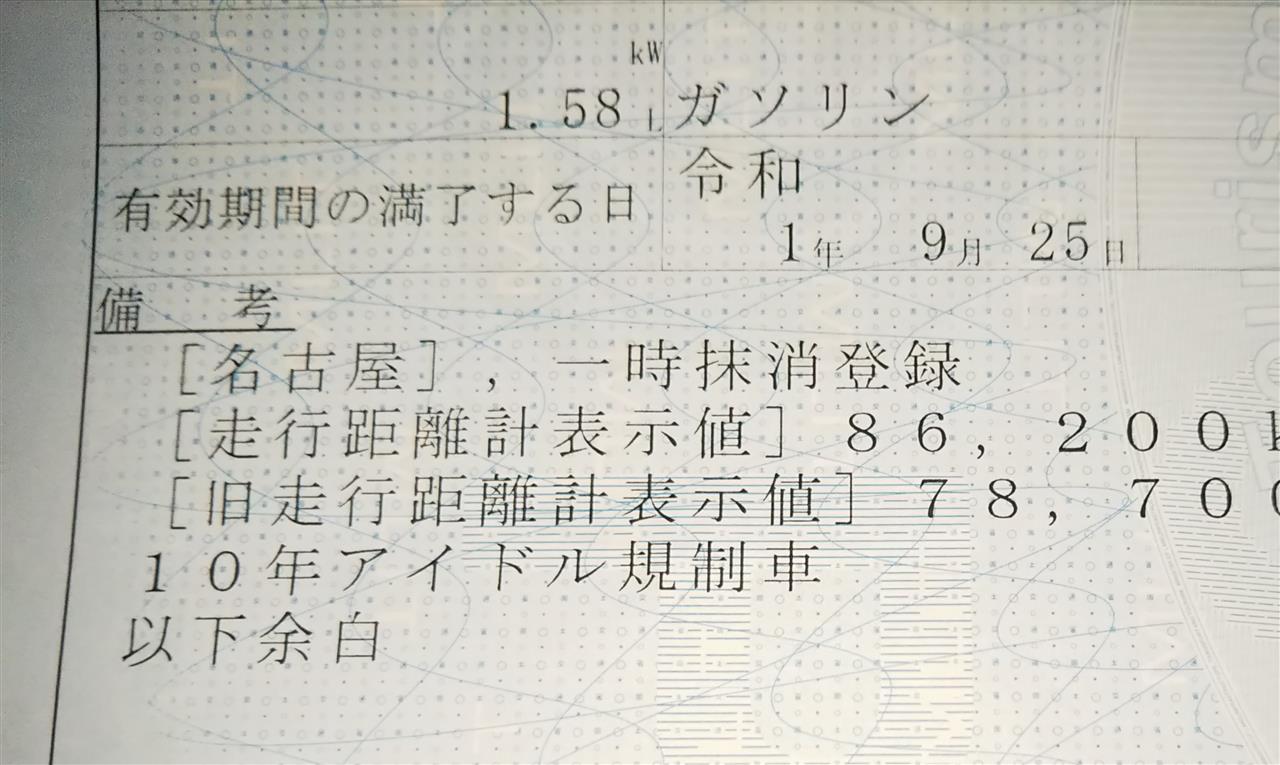 kW
1.58 L ガソリン
有効期間の満了する日
令和
1年 9月 25日
備 考
[名古屋], 一時抹消登録
[走行距離計表示値] 86, 200k
[旧走行距離計表示値] 78, 700
10年アイドル規制車
以下余白